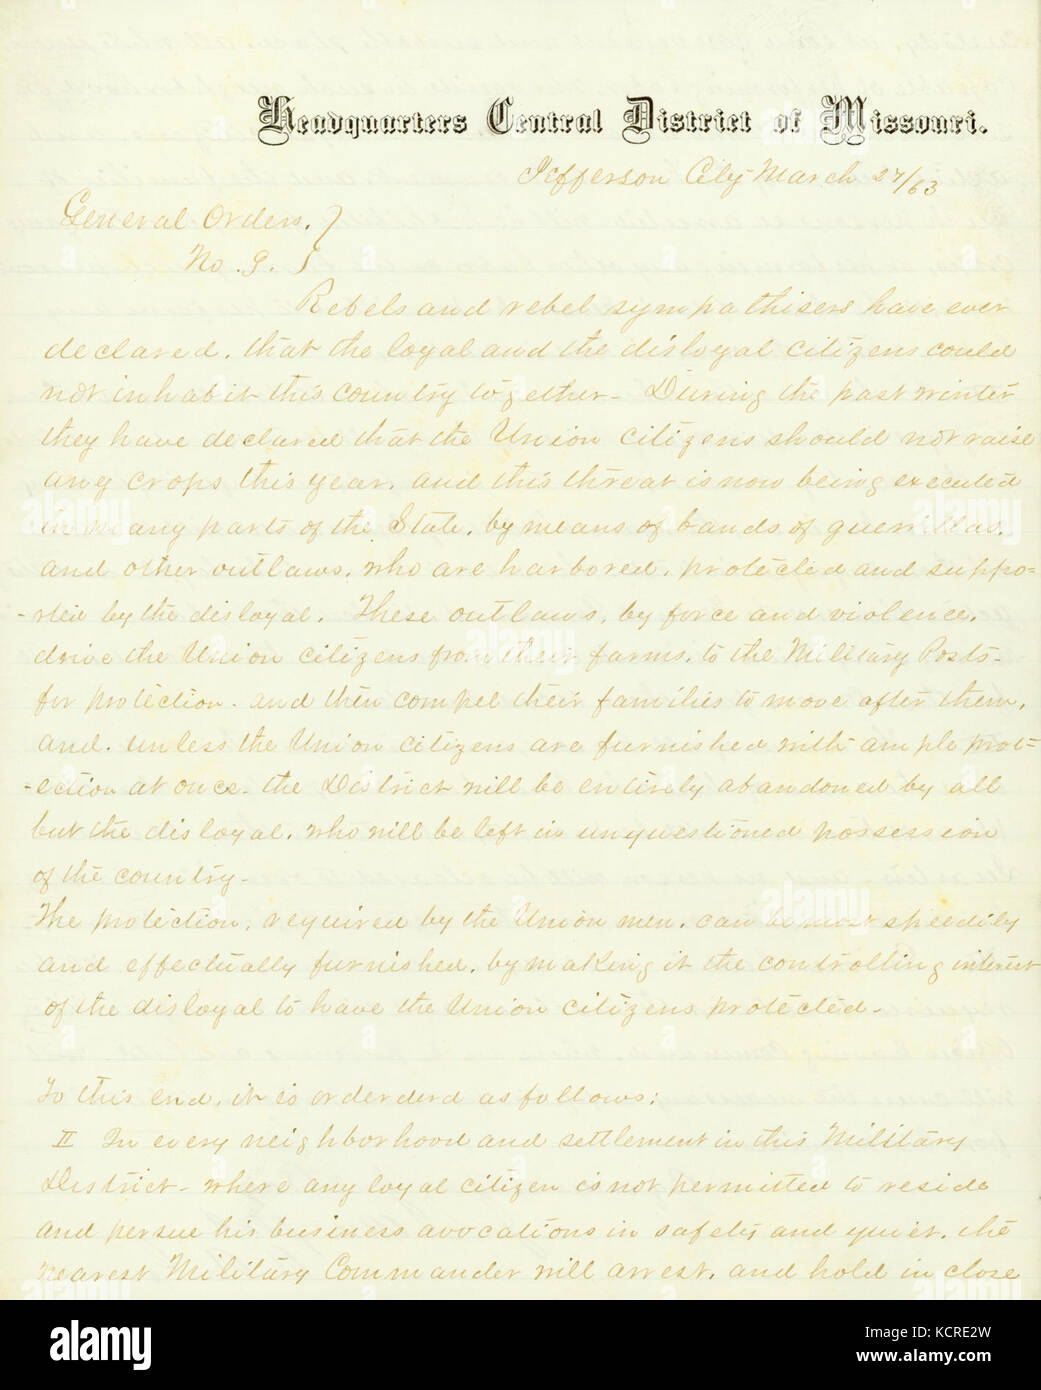 Headquarters Central District of Missouri.
Jefferson City March 27/63
General Orders. }
No. 9. }
Rebels and rebel sympathisers have ever
declared, that the loyal and the disloyal citizens could
not inhabit this country together - During the past winter
they have declared that the Union citizens should not raise
any crops this year, and this threat is now being executed
in many parts of the State, by means of bands of guerrillas,
and other outlaws, who are harbored, protected and suppo=
-rted by the disloyal. These outlaws, by force and violence,
drive the Union citizens from their farms, to the Military Posts-
for protection - and then compel their families to move after them,
and, unless the Union citizens are furnished with ample prot=
-ection at once - the District will be entirely abandoned by all
but the disloyal, who will be left in unquestioned possession
of the country -
The protection, required by the Union men, can be most speedily
and effectually furnished, by making it the controlling interest
of the disloyal to have the Union citizens protected -
To this end, it is orderderd as follows:
II In every neighborhood and settlement in this Military
District - where any loyal citizen is not permitted to reside
and persue his business avocations in safety and quiet, the
nearest Military Commander will arrest, and hold in close
alamy
Image ID: KCRE2W
www.alamy.com